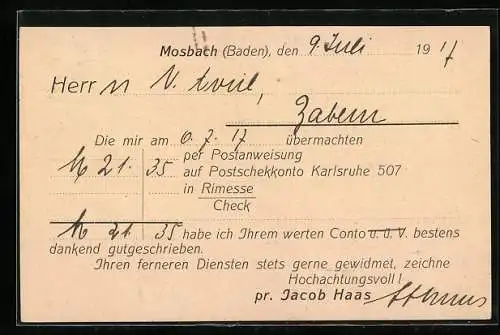 Mosbach (Baden), den 9 Juli 1917
Herrn V.
Zabern
Die mir am 6.7.17 übermachten
M 21. 35 per Postanweisung
auf Postscheckkonto Karlsruhe 507
in Rimesse
Check
M 21 35 habe ich Ihrem werten Conto u. ü. V. bestens
dankend gutgeschrieben.
Ihren ferneren Diensten stets gerne gewidmet, zeichne
Hochachtungsvoll!
pr. Jacob Haas